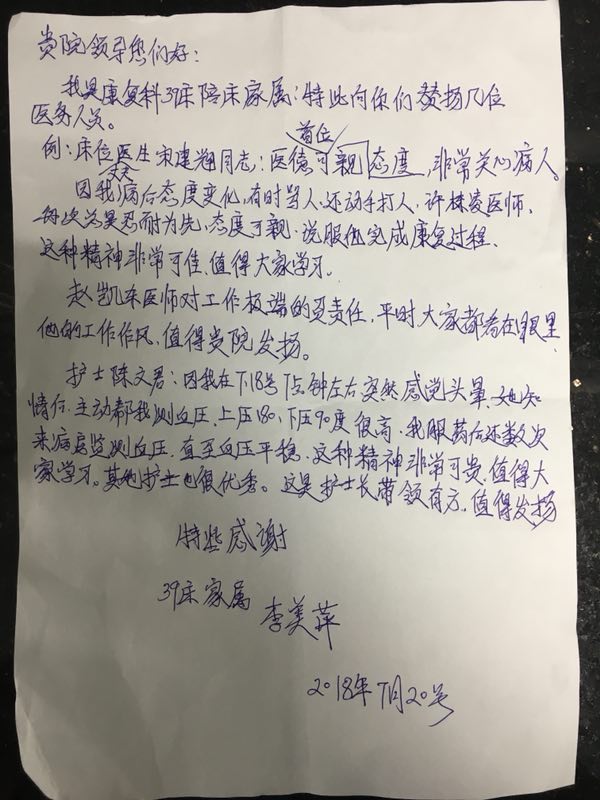 贵院领导您们好：
我是康复科39床陪床家属：特此向你们赞扬几位
医务人员。
首位
例：床位医生宋建翔同志：医德可亲态度，非常关心病人。
丈夫
因我病后态度变化，有时骂人、还动手打人，许林凌医师、
每次总是忍耐为先，态度可亲、说服他完成康复过程、
这种精神非常可佳、值得大家学习。
赵凯东医师对工作极端的负责任，平时大家都看在眼里
他的工作作风、值得贵院发扬。
护士陈文君：因我在7.18号7点钟左右突然感觉头晕、她知
情后、主动都我测血压、上压180、下压90度很高、我服药后还数次
来病房监测血压、直至血压平稳、这种精神非常可贵、值得大
家学习。其他护士也很优秀。这是护士长带领有方、值得发扬
特些感谢
39床家属
李美萍
2018年7月20号